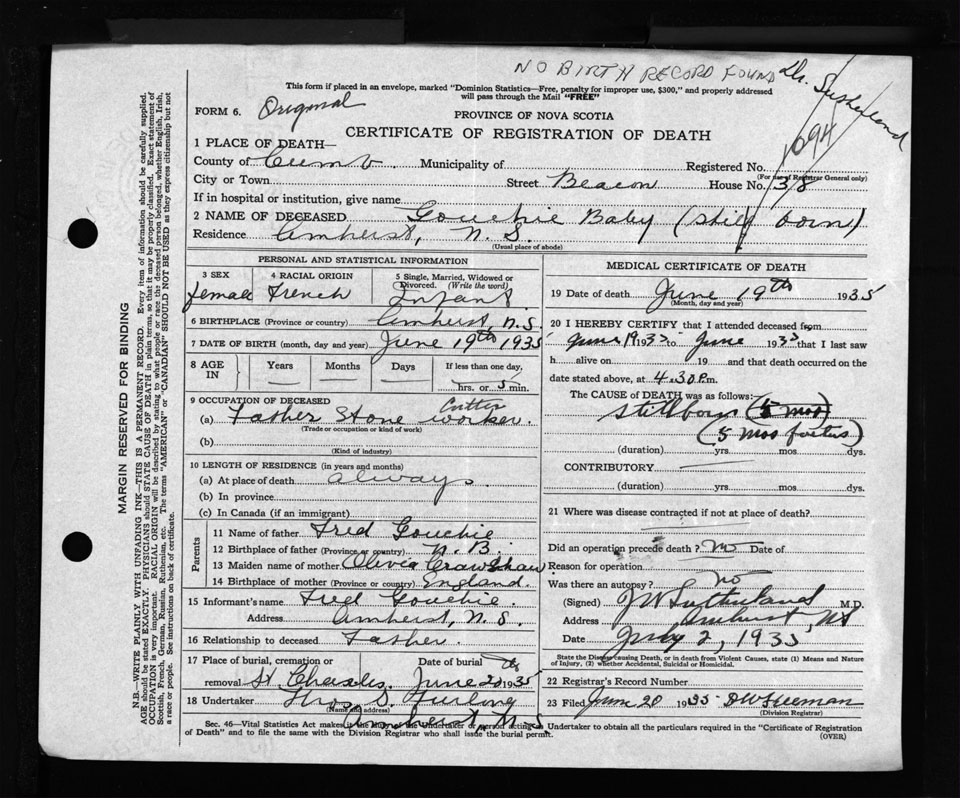 NO BIRTH RECORD FOUND
Dr. Sutherland
This form if placed in an envelope, marked "Dominion Statistics—Free, penalty for improper use, $300," and properly addressed
will pass through the Mail "FREE"
FORM 6. Original
PROVINCE OF NOVA SCOTIA
CERTIFICATE OF REGISTRATION OF DEATH
1 PLACE OF DEATH—
1094
County of Cumb Municipality of Registered No.
(For use of Registrar General only)
City or Town Street Beacon House No. 318
If in hospital or institution, give name
2 NAME OF DECEASED Gouchie Baby (still born)
Residence Amherst, N. S.
(Usual place of abode)
PERSONAL AND STATISTICAL INFORMATION
3 SEX 4 RACIAL ORIGIN 5 Single, Married, Widowed or
Divorced. (Write the word)
female French Infant
6 BIRTHPLACE (Province or country) Amherst, N.S.
7 DATE OF BIRTH (month, day and year) June 19th 1935
8 AGE IN Years Months Days If less than one day,
hrs. or 5 min.
9 OCCUPATION OF DECEASED Cutter
(a) Father Stone worker.
(Trade or occupation or kind of work)
(b)
(Kind of industry)
10 LENGTH OF RESIDENCE (in years and months)
(a) At place of death always
(b) In province
(c) In Canada (if an immigrant)
Parents
11 Name of father Fred Gouchie
12 Birthplace of father (Province or country) N. B.
13 Maiden name of mother Olivia Crawshaw
14 Birthplace of mother (Province or country) England.
15 Informant's name Fred Gouchie
Address Amherst, N. S.
16 Relationship to deceased Father.
17 Place of burial, cremation or Date of burial th
removal St. Charles. June 20 1935
18 Undertaker Thos. S. Furlong
(Name and address)
Amherst N. S.
MEDICAL CERTIFICATE OF DEATH
19 Date of death June 19th 1935
(Month, day and year)
20 I HEREBY CERTIFY that I attended deceased from
June 19 1935 to June 1935 that I last saw
h alive on 19 and that death occurred on the
date stated above, at 4.30 P.m.
The CAUSE OF DEATH was as follows:
Stillborn (5 mos)
(5 mos foetus)
(duration) yrs. mos. dys.
CONTRIBUTORY
(duration) yrs. mos. dys.
21 Where was disease contracted if not at place of death?
Did an operation precede death? no Date of
Reason for operation
Was there an autopsy? no
(Signed) J W Sutherland M.D.
Address Amherst, NS
Date July 2, 1935
State the Disease causing Death, or in death from Violent Causes, state (1) Means and Nature
of Injury, (2) whether Accidental, Suicidal or Homicidal.
22 Registrar's Record Number
23 Filed June 20 1935 DW Freeman
(Division Registrar)
Sec. 46—Vital Statistics Act makes it the Undertaker or person acting as Undertaker to obtain all the particulars required in the "Certificate of Registration
of Death" and to file the same with the Division Registrar who shall issue the burial permit.
(OVER)
MARGIN RESERVED FOR BINDING
N.B.—WRITE PLAINLY WITH UNFADING INK—THIS IS A PERMANENT RECORD. Every item of information should be carefully supplied.
AGE should be stated EXACTLY. PHYSICIANS should STATE CAUSE OF DEATH in plain terms, so that it may be properly classified. Exact statement of
OCCUPATION is very important. RACIAL ORIGIN will be described by stating to what people or race the deceased person belonged, whether English, Irish,
Scottish, French, German, Russian, Ruthenian, etc. The terms "AMERICAN" or "CANADIAN" SHOULD NOT BE USED as they express citizenship but not
a race or people. See instructions on back of certificate.